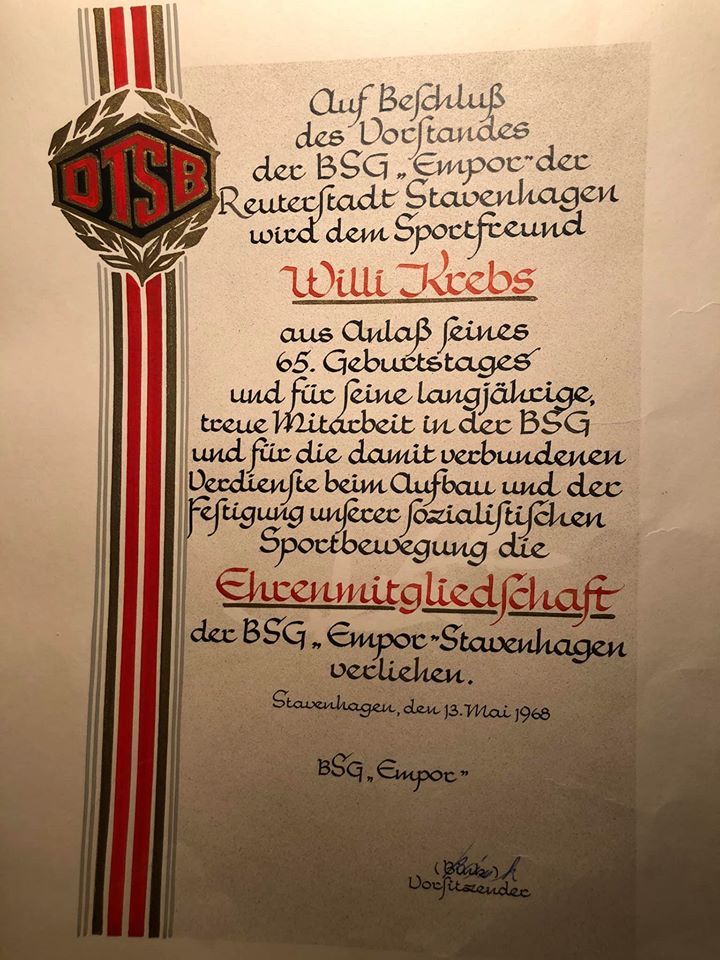 DTSB
Auf Beschluß
des Vorstandes
der BSG „Empor“ der
Reuterstadt Stavenhagen
wird dem Sportfreund
Willi Krebs
aus Anlaß seines
65. Geburtstages
und für seine langjährige,
treue Mitarbeit in der BSG
und für die damit verbundenen
Verdienste beim Aufbau und der
Festigung unserer sozialistischen
Sportbewegung die
Ehrenmitgliedschaft
der BSG „Empor“ Stavenhagen
verliehen.
Stavenhagen, den 13. Mai 1968
BSG „Empor“
Vorsitzender